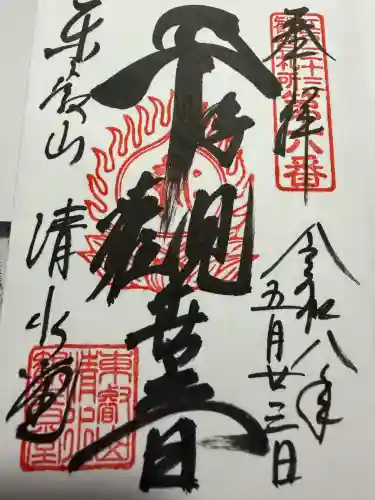 奉拝
江戸三十三
観音札所
第六番
令和八年
五月廿三日
千手観世音
東叡山
清水堂
東叡山
清水
観音堂